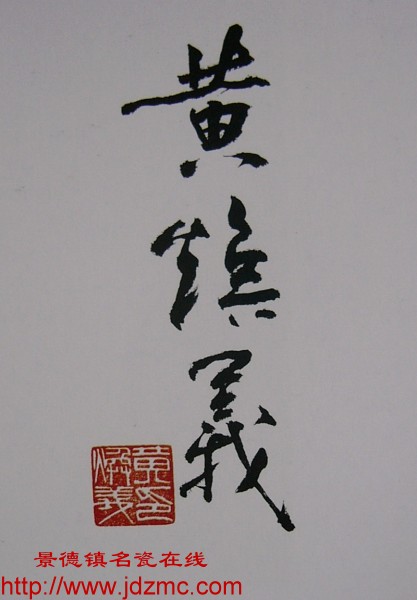 黄焕義
黄印
焕義
景德镇名瓷在线
http://www.jdzmc.com